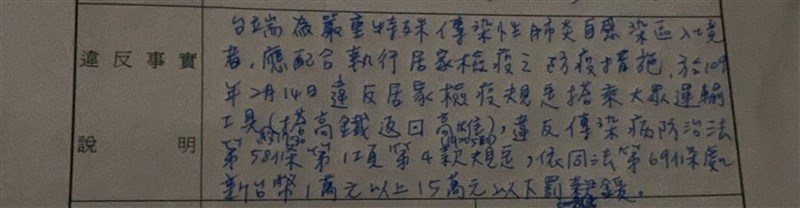 違反事實
說明
台端為嚴重特殊傳染性肺炎自感染區入境
者,應配合執行居家檢疫之防疫措施,於109
年2月14日違反居家檢疫規定搭乘大眾運輸
工具(搭高鐵返回高雄),違反傳染病防治法
第58條第1項第4款規定,依同法第69條處
新台幣1萬元以上15萬元以下罰鍰。